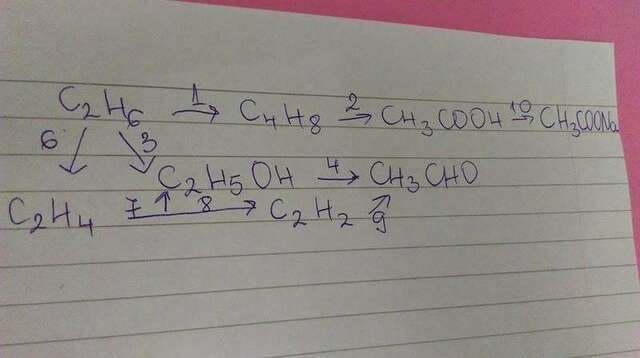 C₂H₆ 1→ C₄H₈ 2→ CH₃COOH 10→ CH₃COONa
6↓ 3↘
C₂H₅OH 4→ CH₃CHO
C₂H₄ 7↑ 8→ C₂H₂ 9↗